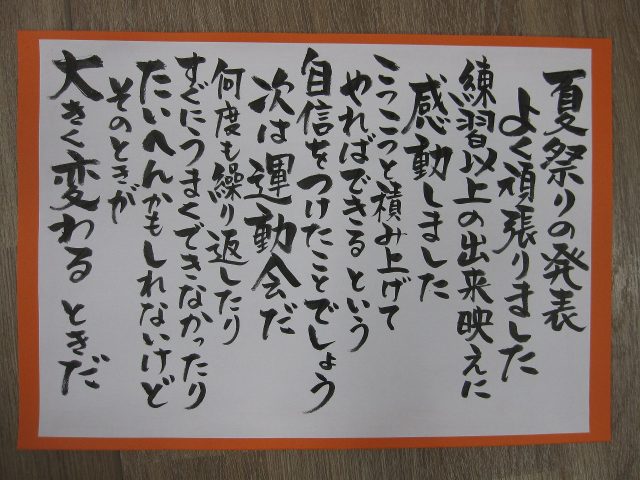 夏祭りの発表
よく頑張りました
練習以上の出来映えに
感動しました
こつこつと積み上げて
やればできるという
自信をつけたことでしょう
次は運動会だ
何度も繰り返したり
すぐにうまくできなかったり
たいへんかもしれないけど
そのときが
大きく変わるときだ